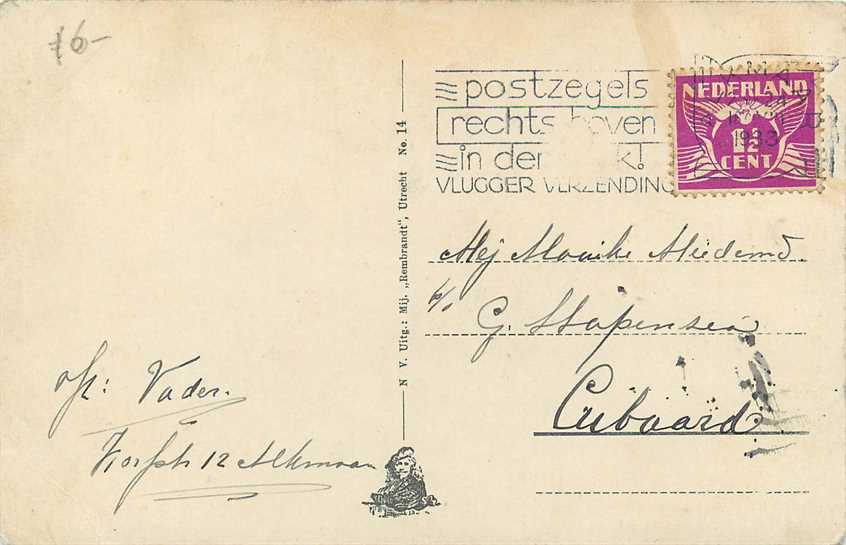 16-
postzegels
rechts boven
in de
VLUGGER VERZENDING
NEDERLAND
1933
1½
CENT
N V. Uitg.: Mij. „Rembrandt", Utrecht No. 14
Mej Maaike Miedema
p/o
G. Stapensea
Cubaard
Afz: Vader.
12 Alkmaar